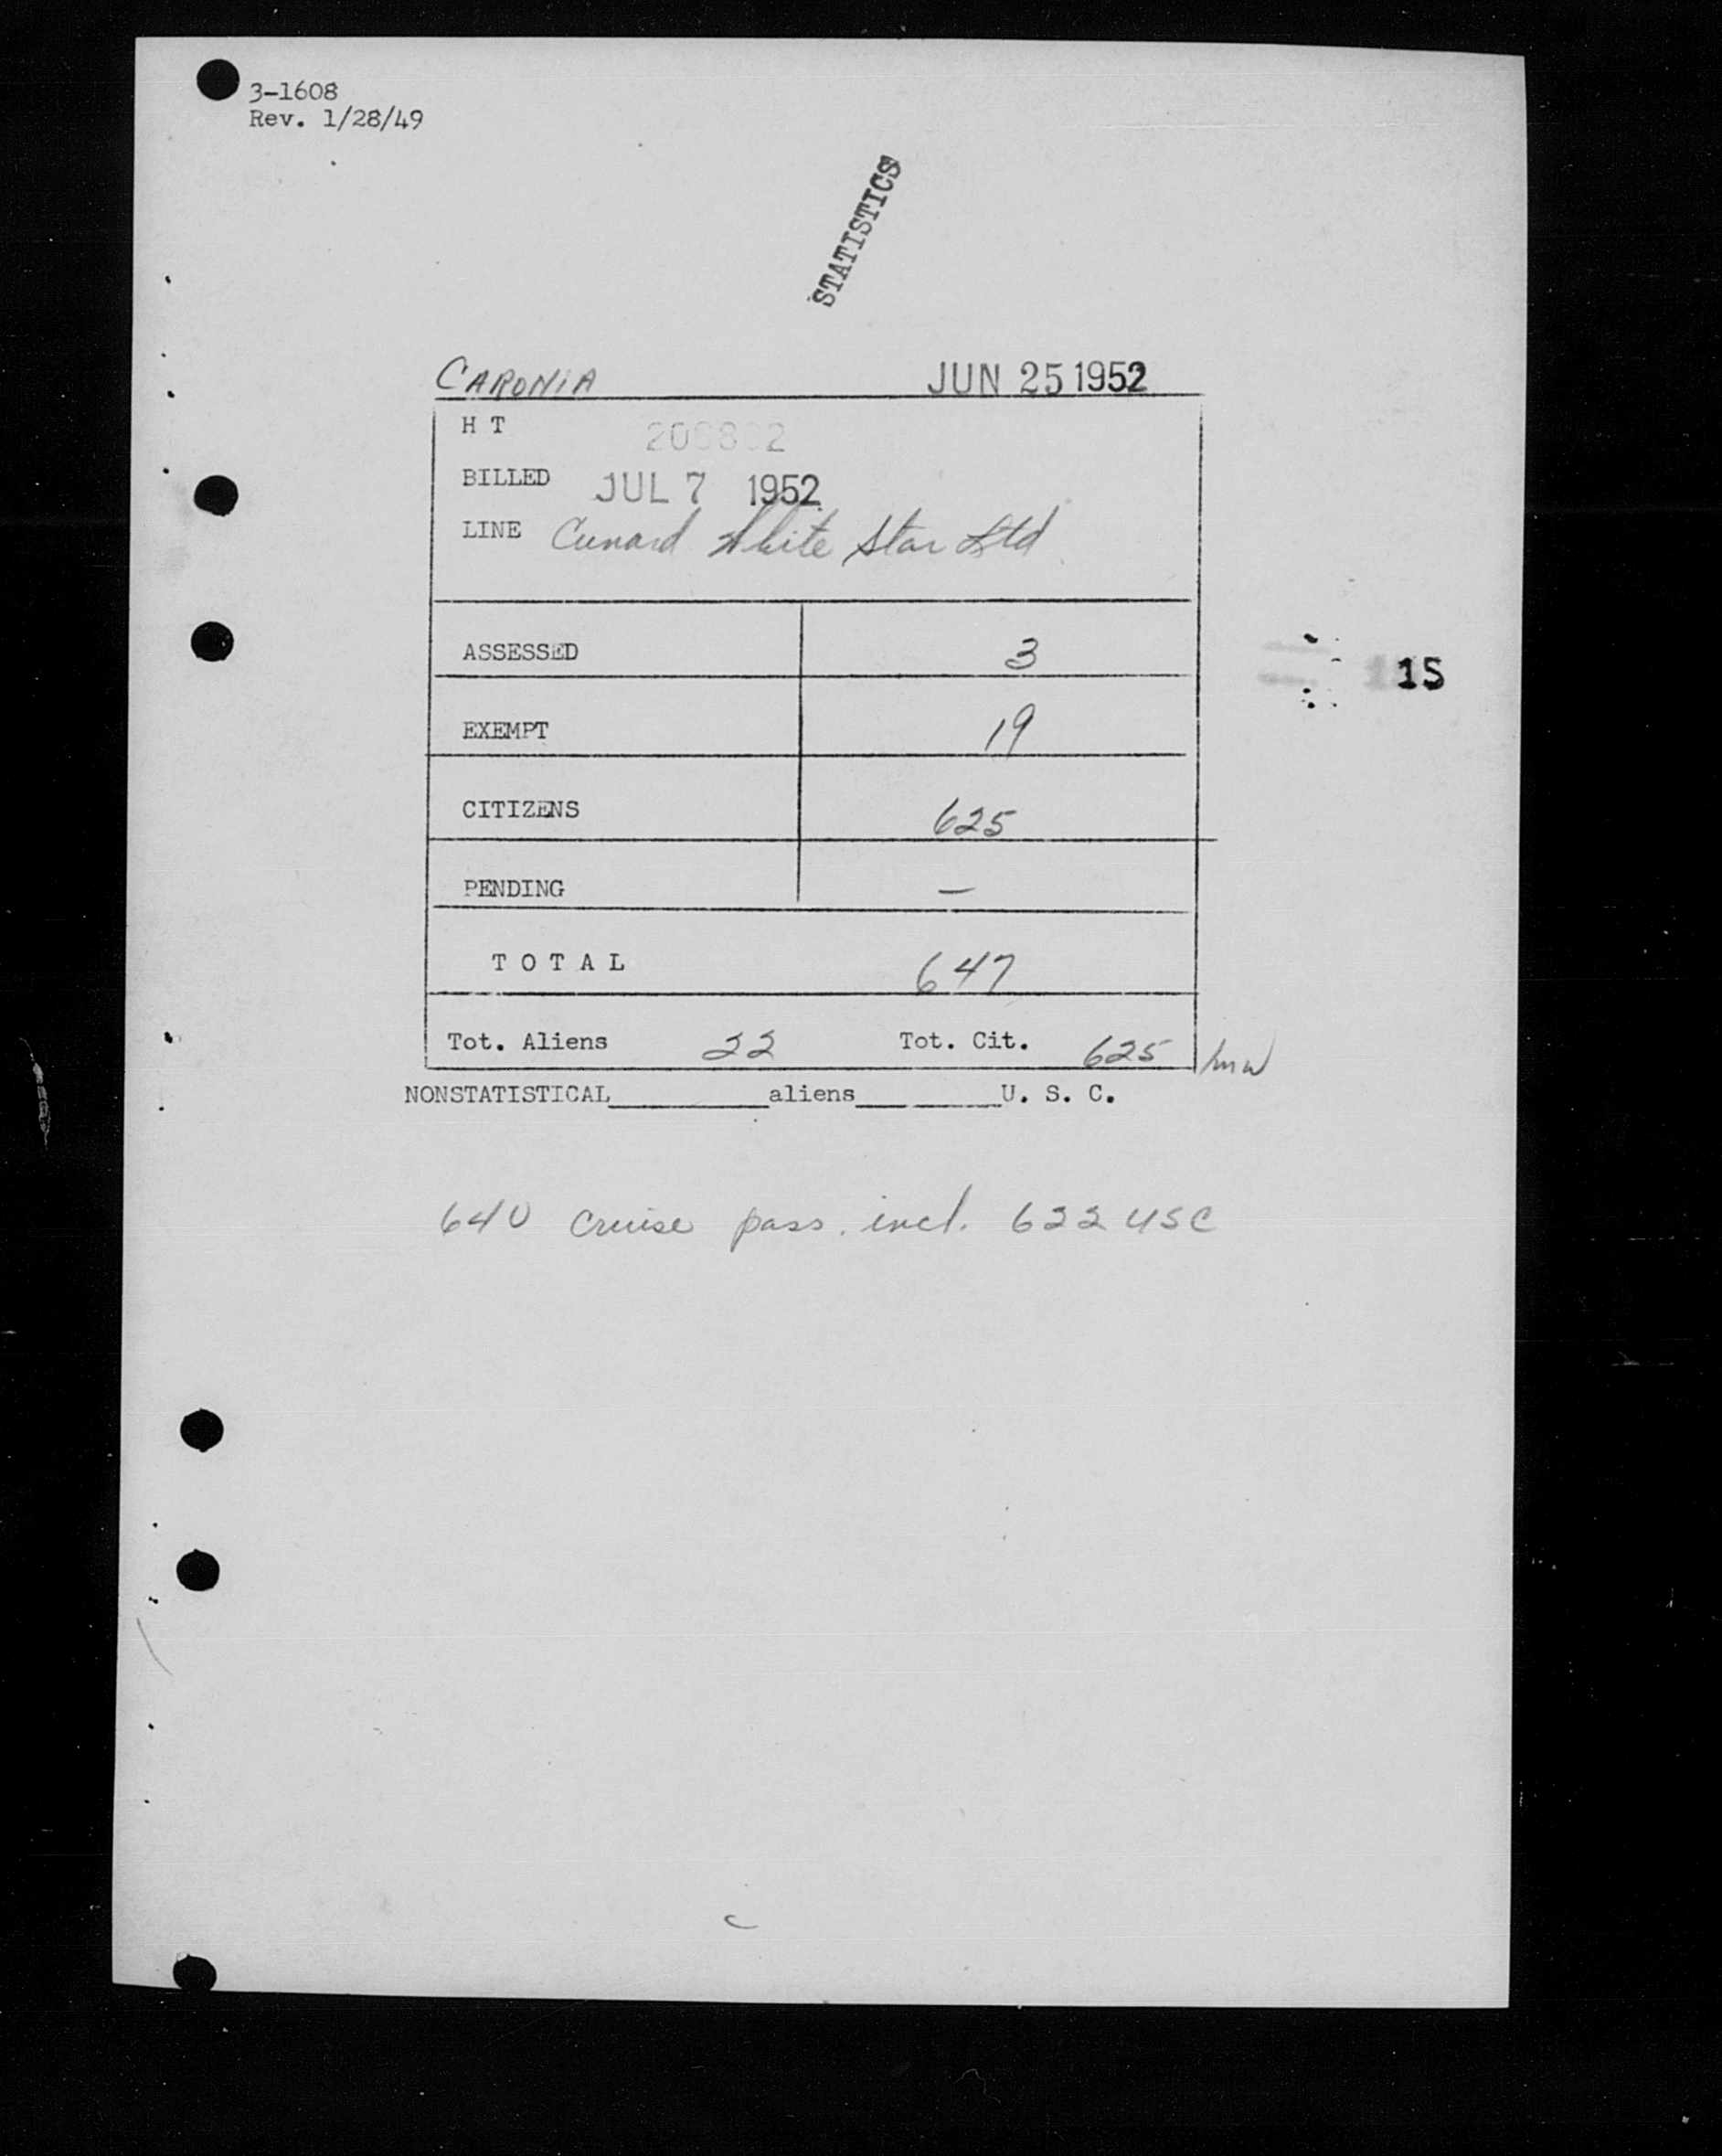 3-1608
Rev. 1/28/49
STATISTICS
CARONIA JUN 25 1952
H T
BILLED JUL 7 1952
LINE Cunard White Star Ltd
ASSESSED 3
15
EXEMPT 19
CITIZENS 625
PENDING —
T O T A L 647
Tot. Aliens 22 Tot. Cit. 625 hmw
NONSTATISTICAL________aliens________U. S. C.
640 cruise pass. incl. 622 USC